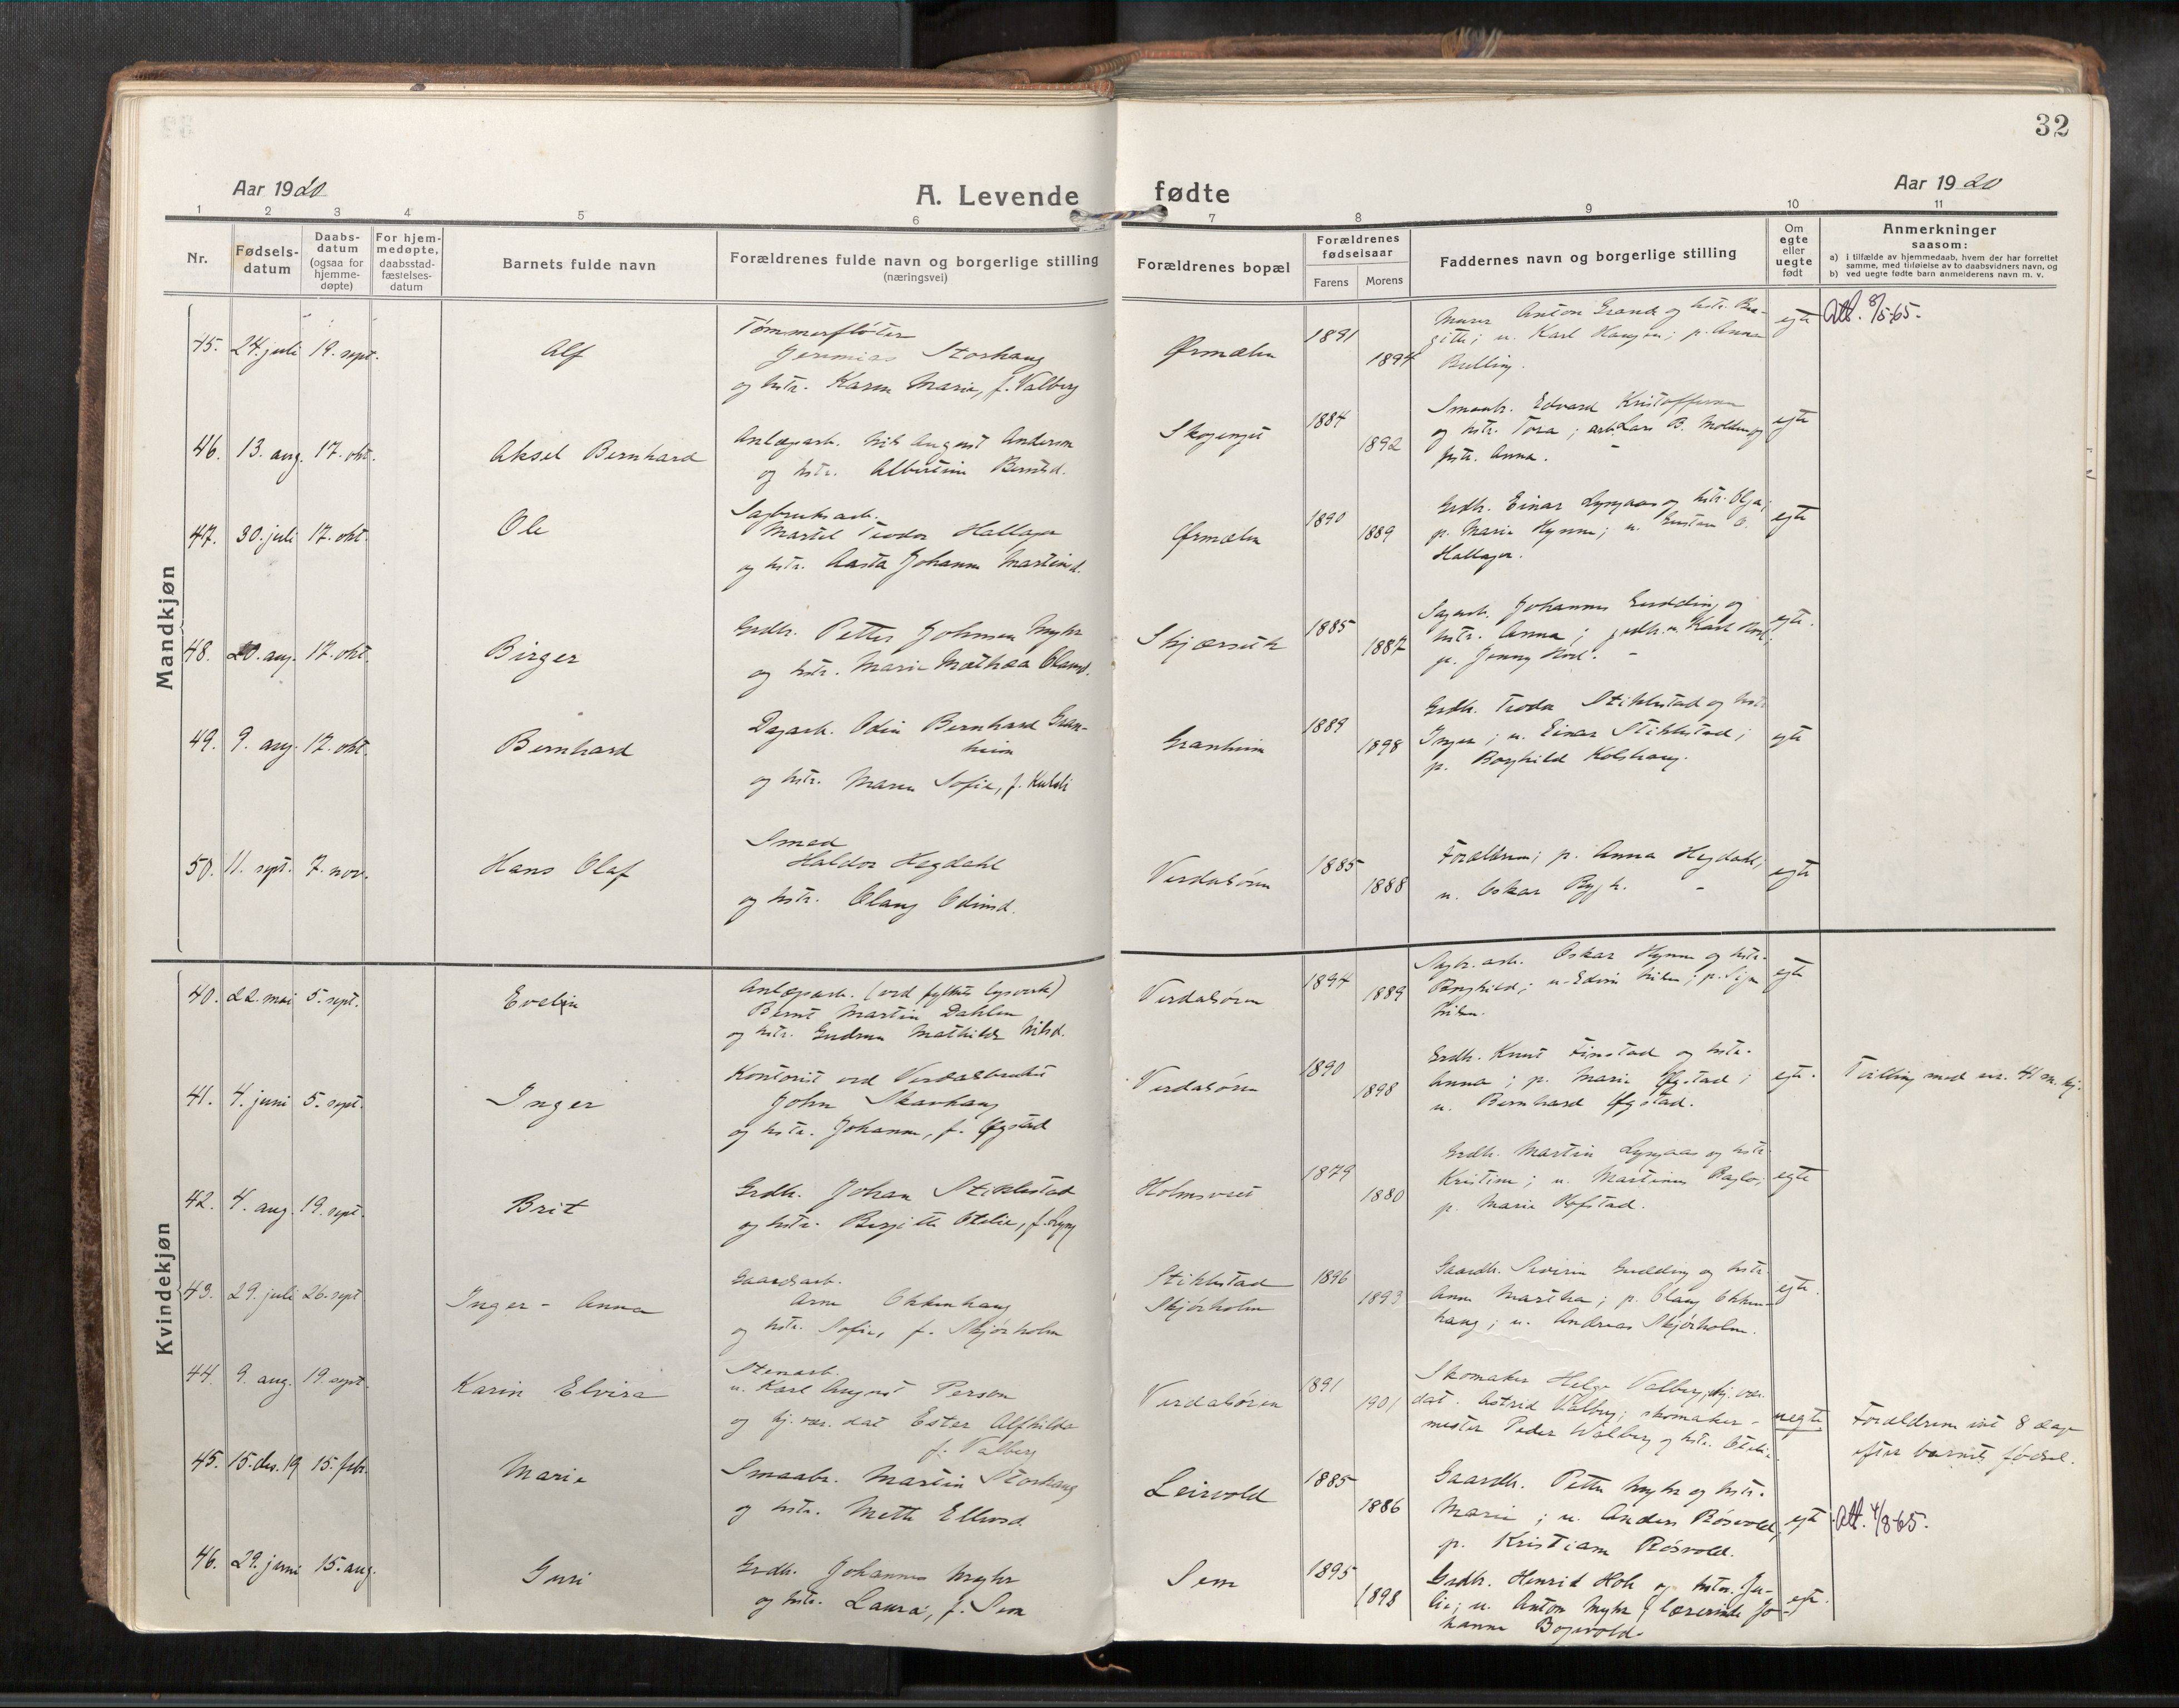 32
Aar 1920
A. Levende fødte
Aar 1920
1 2 3 4 5 6 7 8 9 10 11
Nr.
Fødsels-
datum
Daabs-
datum
(ogsaa for
hjemme-
døpte)
For hjem-
medøpte,
daabsstad-
fæstelses-
datum
Barnets fulde navn
Forældrenes fulde navn og borgerlige stilling
(næringsvei)
Forældrenes bopæl
Forældrenes
fødselsaar
Farens Morens
Faddernes navn og borgerlige stilling
Om
egte
eller
uegte
født
Anmerkninger
saasom:
a) i tilfælde av hjemmedaab, hvem der har forrettet
samme, med tilføielse av to daabsvidners navn, og
b) ved uegte fødte barn anmelderens navn m. v.
Mandkjøn
45. 24. juli 19. sept. Alf
Tømmerfløter
Jeremias Storhaug
og hstr. Karen Marie, f. Valberg
Ørmælen 1891 1894
Murer Anton Grande og hstr. Ber-
gitte; u. Karl Haugen; p. Anna
Bulling.
egte
Att. 8/5-65.
46. 13. aug. 17. okt. Aksel Bernhard
Anlægsarb. Nils August Anderson
og hstr. Albertine Berntsd.
Skogenget 1884 1892
Smaabr. Edvard Kristoffersen
og hstr. Tora; arb. Lars B. Molden og
hstr. Anna.
egte
47. 30. juli 17. okt. Ole
Sagbruksarb.
Martel Teodor Hallager
og hstr. Aasta Johanne Martinsd.
Ørmælen 1890 1889
Grdb. Einar Lyngaas og hstr. Olga;
p. Marie Hynne; u. Gustav O.
Hallager.
egte
48. 20. aug. 17. okt. Birger
Grdb. Petter Johnsen Myhr
og hstr. Marie Mathea Olausd.
Skjærsett 1885 1887
Sagarb. Johannes Gudding og
hstr. Anna; grdb. u. Karl
p. Jenny
egte.
49. 9. aug. 17. okt. Bernhard
Dagarb. Odin Bernhard Gran-
heim
og hstr. Maren Sofie, f. Kulsli
Granheim 1889 1898
Grdb. Teodor Stiklestad og hstr.
Inger; u. Einar Stiklestad;
p. Borghild Kolshaug.
egte
50. 11. sept. 7. nov. Hans Olaf
Smed
Haldor Hegdahl
og hstr. Olaug Odinsd.
Verdalsøren 1885 1888
Forældrene; p. Anna Hegdahl;
u. Oskar Rygh.
egte
Kvindekjøn
40. 22. mai 5. sept. Evelin
Anlægsarb. (ved fylkets lysverk)
Bernt Martin Dahlen
og hstr. Gudrun Mathilde Nilsd.
Verdalsøren 1894 1889
Sagbr. arb. Oskar Hynne og hstr.
Borghild; u. Edvin Nilsen; p. Signe
Nilsen.
egte
41. 4. juni 5. sept. Inger
Kontorist ved Verdalsbruket
John Skavhaug
og hstr. Johanne, f. Øgstad
Verdalsøren 1890 1898
Grdb. Knut Finstad og hstr.
Anna; p. Marie Øgstad;
u. Bernhard Øgstad.
egte.
Tvilling med nr. 41 m. kj.
42. 4. aug. 19. sept. Brit
Grdb. Johan Stiklestad
og hstr. Bergitte Otelie, f. Lyng
Holmsvest 1879 1880
Grdb. Martin Lyngaas og hstr.
Kristine; u. Martinus Baglo;
p. Marie Hofstad.
egte
43. 29. juli 26. sept Inger-Anna
Gaardsarb.
Arne Okkenhaug
og hstr. Sofie, f. Skjørholm
Stiklestad
Skjørholm
1896 1893
Gaardb. Severin Gudding og hstr.
Anne Martha; p. Olaug Okken-
haug; u. Andreas Skjørholm.
egte.
44. 9. aug. 19. sept. Karin Elvira
Stenarb.
u. Karl August Person
og hj. vær. dat Ester Alfhilda
f. Valberg
Verdalsøren 1891 1901
Skomaker Helge Valberg, hj. vær.
dat. Astrid Valberg; skomaker-
mester Peder Walberg og hstr. Oteli-
uegte
Forældrene viet 8 dage
efter barnets fødsel.
45. 15. des. 19 15. febr. Marie
Smaabr. Martin Storhaug
og hstr. Mette Ellevsd.
Leirvold 1885 1886
Gaardb. Petter Myhr og hstr.
Marie; u. Anders Røsvold,
p. Kristiane Røsvold.
egte
Att. 4/8-65.
46. 29. juni 15. aug. Guri
Grdb. Johannes Myhr
og hstr. Laura, f. Sem
Sem 1895 1898
Grdb. Henrik Hole og hstr. Ju-
lie; u. Anton Myhr; lærerinde Jo-
hanne Bogevold.
egte.